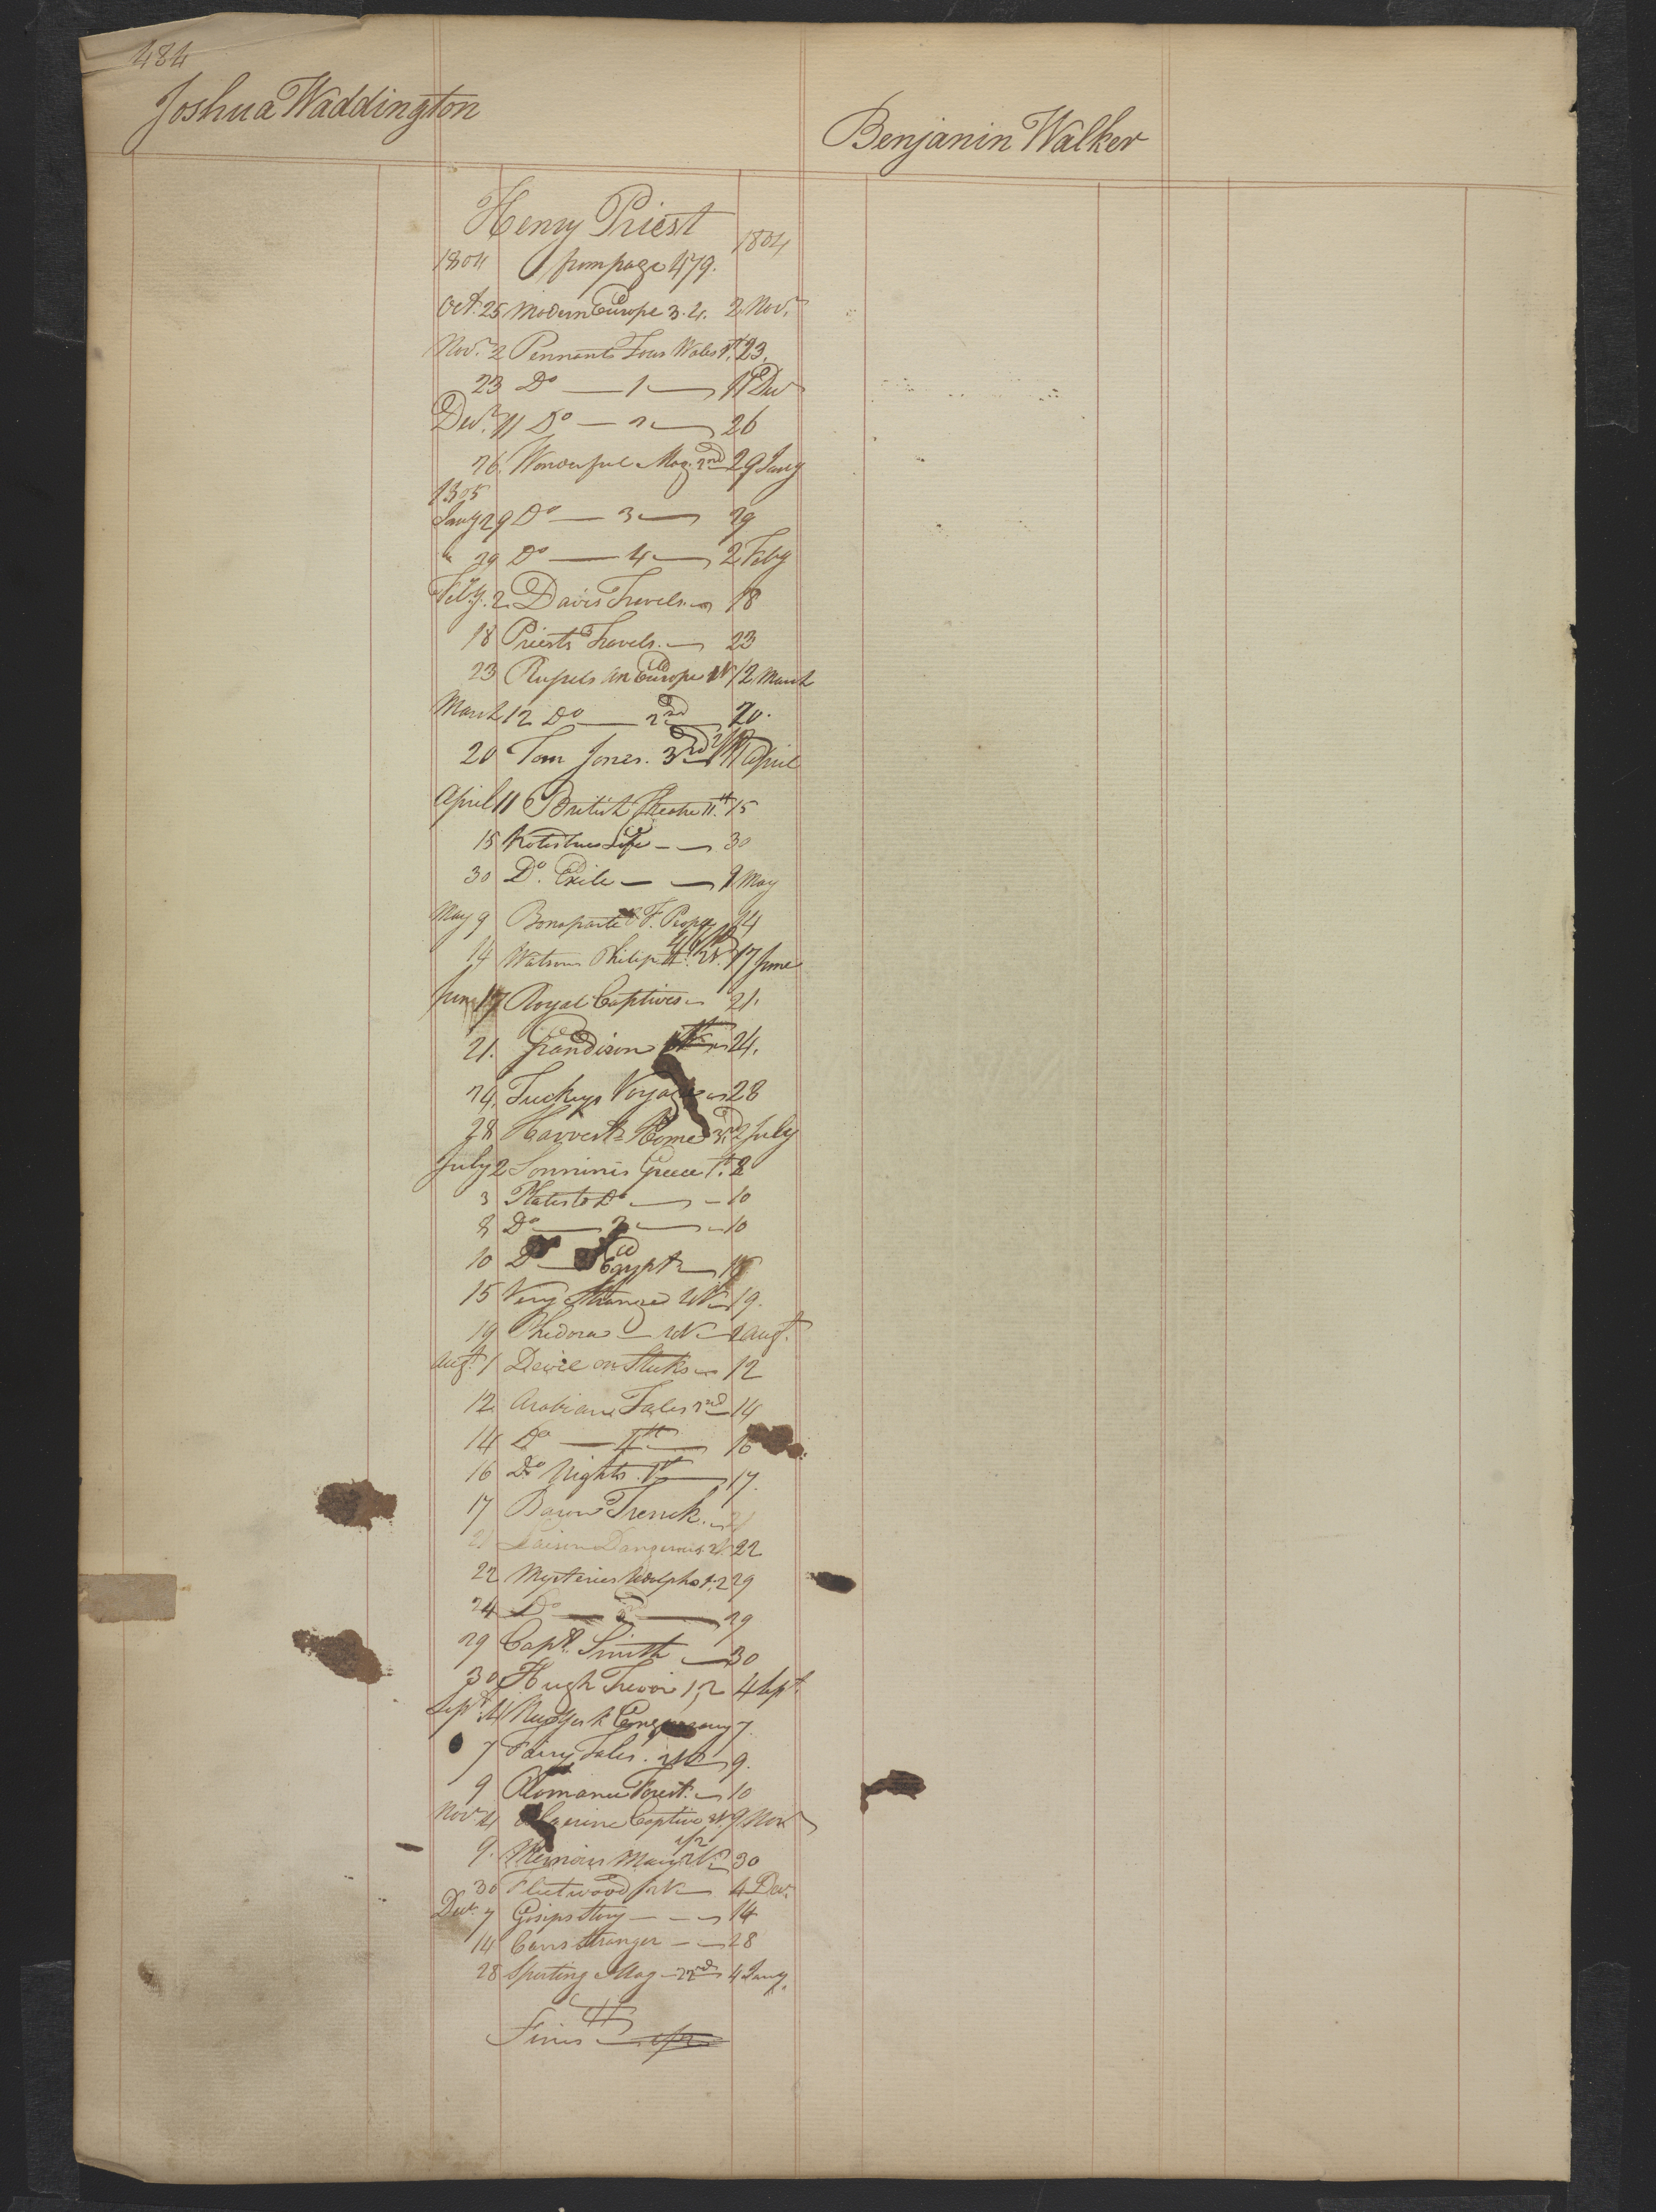 484
Joshua Waddington
Benjamin Walker
Henry Priest
1804 from page 479. 1804
Oct. 25 Modern Europe 3. 4. 2 Nov.r
Nov.r 2 Pennants Tour Wales 1st 23.
23 Do — 1 — 11 Decr
Decr. 11 Do — 2 — 26
26. Wonderful Mag. 2nd 29 Jany
1805
Jany 29 Do — 3 — 29
" 29 Do — 4 — 2 Feby
Feby. 2. Davis Travels. 18
18 Priests Travels. — 23
23 Rufsels Mn Europe 12 March
March 12 Do — 2nd 20.
20 Tom Jones. 3rd 11 April
April 11 British Theatre 11th 15
15 Kotzebues Life — 30
30 Do. Exile — 9 May
May 9 Bonaparte & F. People 14
14 Watsons Philip 17 June
June 17 Royal Captives 21.
21. Grandison 24.
24. Tuckeys Voyage 28
28 Harvest Home 3rd 2 July
July 2 Sonninis Greece 1st. 8
3 Plates to Do — 10
8 Do — 2 — 10
10 Do — Egypt — 15
15 Very Strange 2V 19.
19 Phedora — 2V 1 Augt.
Augt. 1 Devil on Sticks 12
12. Arabian Tales 3rd 14
14 Do — 4th — 16
16 Do Nights. 1st — 17.
17 Baron Trenck. 21
21 Liaison Dangerous 2V. 22
22 Mysteries Udolpho 1. 2 29
24 Do — 3rd — 29
29 Capt. Smith — 30
30 Hugh Trevor 1, 2 4 Sept.
Sept. 4 New York Conspiracy 7.
7 Fairy Tales. 2V 9.
9 Romance Forest. 10
Novr 4 Algerine Captive 2V. 9 Novr
9. Memoirs Mary 2V 30
30 Fleetwood 2V 4 Decr.
Decr. 7 Gosips Story — 14
14 Cavern Stranger — 28
28 Sporting Mag — 22nd 4 Jany.
Finis